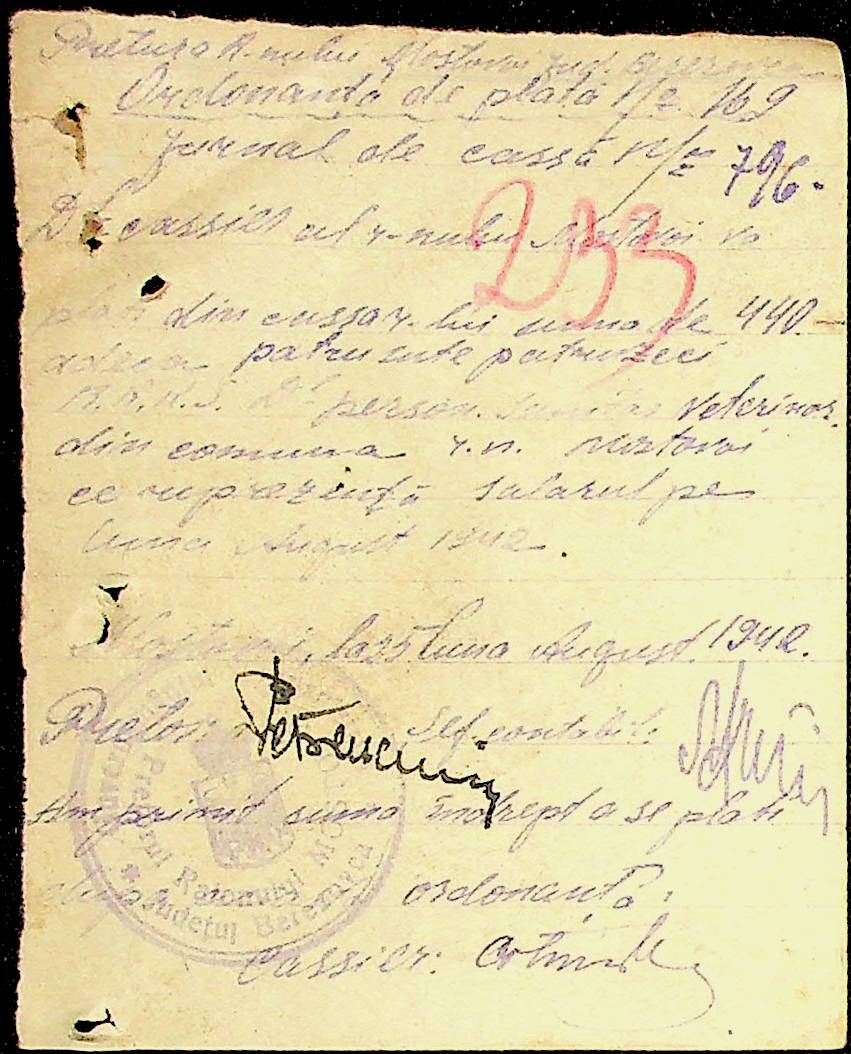 Pretura R-nului Mostovoi jud. Berezovca
Ordonanta de plată Nr 169
Jurnal de cassă Nr 796.
233
Dl cassier al r-nului Mostovoi va
plati din cassa r. lui suma de 440.-
adeca patrusute patruzeci
R.K.K.S. Dl person. veterinar.
din comuna r.n. Mostovoi
ce reprezintă salarul pe
luna August 1942.
Mostovoi, la 25 luna August 1942.
Pretor Petrescu Sef contabil:
Am primit suma indrept a se plati
ordonantă.
Cassier:
Pretorul Raionului Mostovoi
* Judetul Berezovca